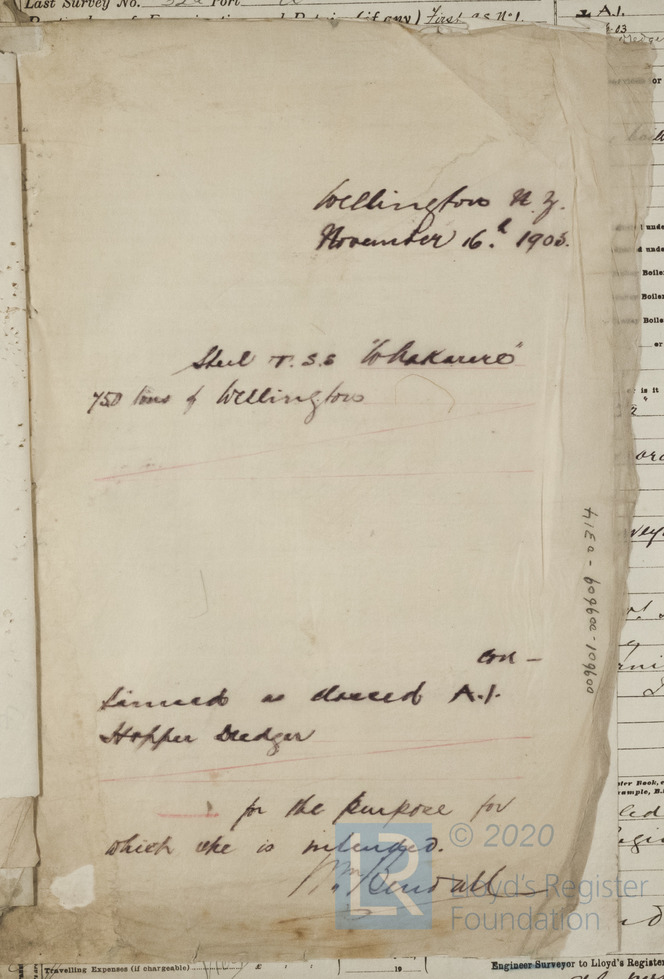 Last Survey No.
Port
(if any) First as No 1.
A.1.
Wellington N.Z.
November 16.h 1903.
Steel T.S.S "Whakarire"
750 tons of Wellington
con-
tinued as classed A.1.
Hopper Dredger
for the purpose for
which she is intended.
Wm Kendall
009601-009609-0314
© 2020
LR
Lloyd's Register
Foundation
Travelling Expenses (if chargeable)
19
Engineer Surveyor to Lloyd's Register